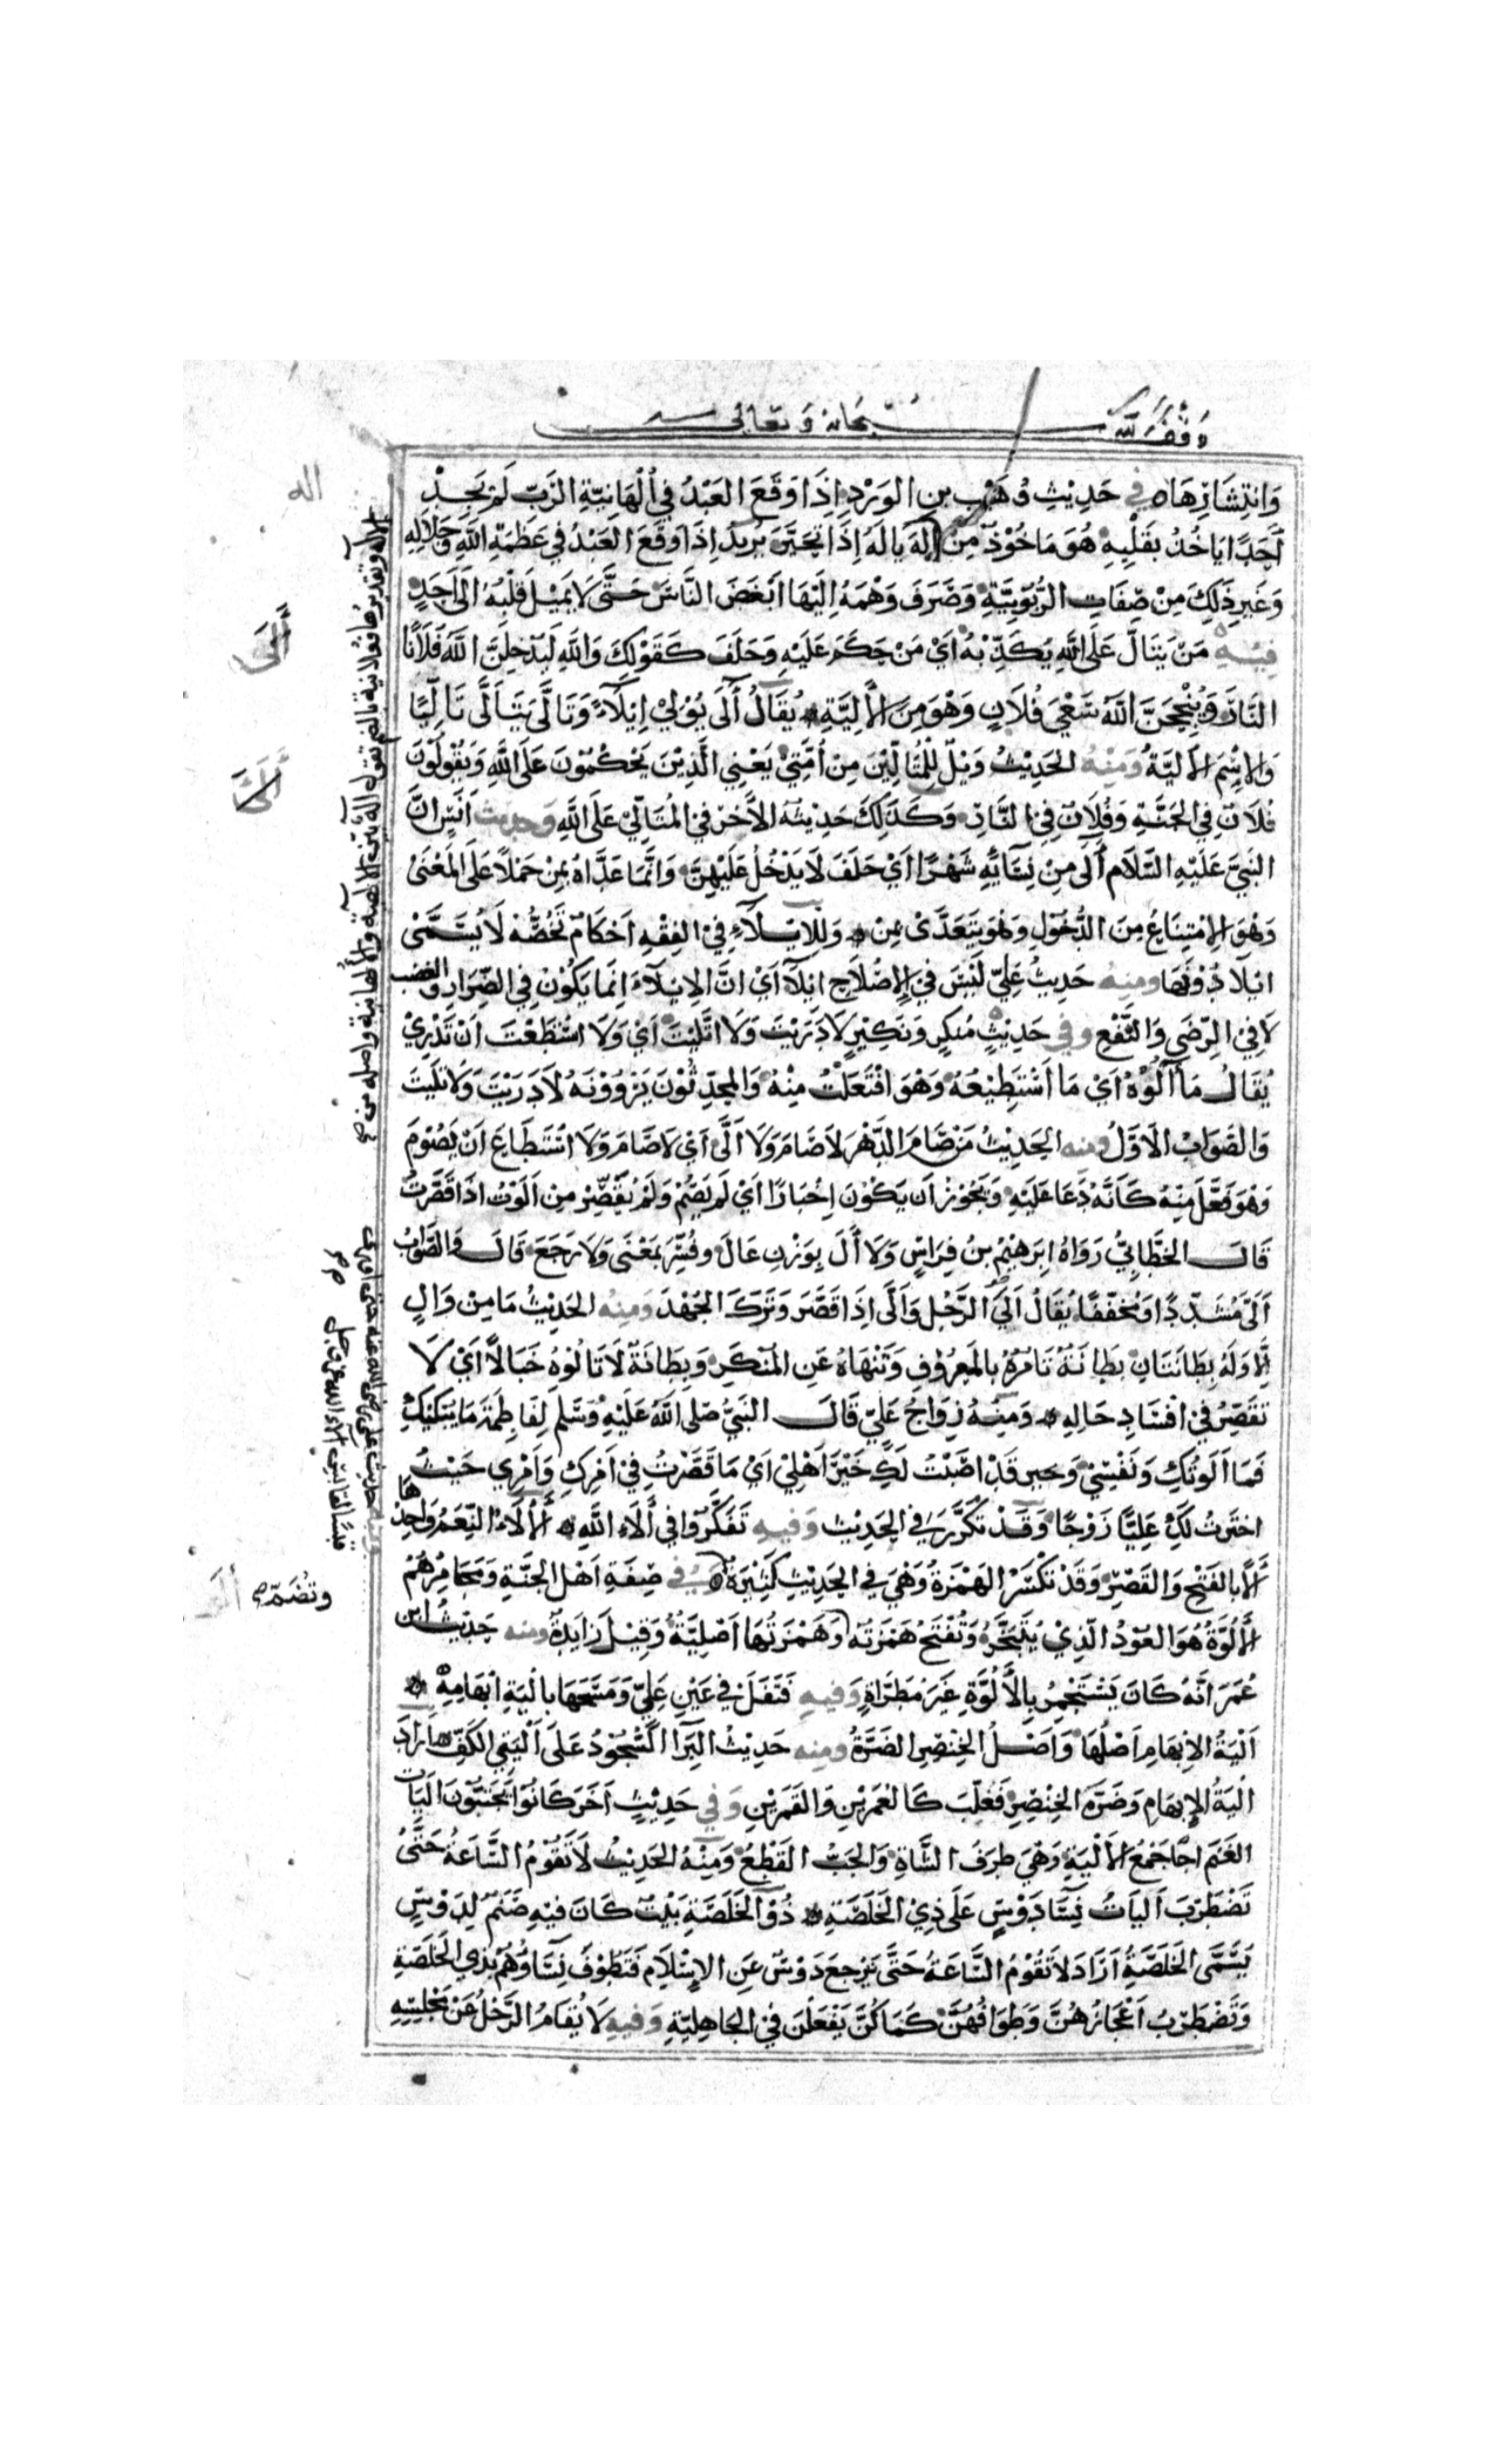 وقف لله سبحانه وتعالى
وَانْتِشَارِهَا في حَدِيْثِ وُهَيْبِ بنِ الوَرْدِ اِذَا وَقَعَ العَبْدُ في اُلْهَانِيّةِ الرَبّ لَمْ يَجِدْ
اَحَدًا يَاخُذُ بقَلْبِهِ هُوَ مَاخُوْذٌ مِنْ اِلهٍ يَالَهُ إِذَا تَحَيَّرَ يُرِيدُ اِذَا وَقَعَ العَبْدُ في عَظَمَةِ اللهِ وَجَلَالِهِ
وَغَيرِ ذَلِكَ مِنْ صِفَاتِ الرُّبُوْبِيَّةِ وَصَرَفَ وَهْمَهُ اِلَيْهَا اَبْغَضَ النَّاسَ حَتَّى لَا يَمِيْلَ قَلْبُهُ اِلَى اَحَدٍ
فيه مَنْ يَتَالَّ عَلَى اللهِ يُكَذِّبْهُ اَيْ مَنْ حَكَمَ عَلَيْهِ وَحَلَفَ كَقَوْلِكَ وَاللهِ لَيُدْخِلَنَّ اللهُ فُلَانًا
النَّارَ وَيُنْجِحَنَّ اللهُ سَعْيَ فُلَانٍ وَهْوَ مِنَ الأَلِيَّةِ يُقَالُ آلَى يُوْلِيْ اِيْلَاءً وَتَالَّى يَتَاَلَّى تَالِيًا
وَالاِسْمُ الأَلِيَّةُ وَمِنْهُ الحَدِيْثُ وَيْلٌ لِلْمُتَالِّيْنَ مِنْ اُمَّتِيْ يَعْنِي الَّذِيْنَ يَحْكُمُوْنَ عَلَى اللهِ وَيَقُوْلُوْنَ
فُلَانٌ فِي الجَنَّةِ وَفُلَانٌ فِي النَّارِ وَكَذَلِكَ حَدِيْثُهُ الآخَرُ في المُتَالِّيْ عَلَى اللهِ وَحديث اَنَسٍ اَنَّ
النَبِيَّ عَلَيْهِ السَّلَام آلَى مِنْ نِسَائِهِ شَهْرًا اَيْ حَلَفَ لَا يَدْخُلُ عَلَيْهِنَّ وَاِنَّمَا عَدَّاهُ بِمِنْ حَمْلًا عَلَى المَعْنَى
وَهْوَ الاِمْتِنَاعُ مِنَ الدُّخُوْلِ وَهُوَ يَتَعَدَّى بِمِنْ وَلِلاِيْلَاءِ فِي الفِقْهِ اَحْكَامٌ تَخُصُّهُ لَا يُسَمَّى
اِيْلَاءً دُوْنَهَا ومنه حَدِيثُ عَلِيّ لَيْسَ في الاِصْلَاحِ اِيْلَاءٌ اَيْ اَنَّ الاِيْلَاءَ اِنَّمَا يَكُوْنُ فِي الضِّرَارِ والغضب
لَا فِيْ الرِّضَى وَالنَّفْعِ وفي حَدِيْثِ مُنكَرٍ وَنَكِيْرٍ لَا دَرَيْتَ وَلَا ائْتَلَيْتَ اَيْ وَلَا اسْتَطَعْتَ اَنْ تَدْرِيْ
يُقَالُ مَا آلُوْهُ اَيْ مَا اَسْتَطِيْعُهُ وَهْوَ افْتَعَلْتُ مِنْهُ وَالمُحَدِّثُوْنَ يَرْوُوْنَهُ لَا دَرَيْتَ وَلَا تَلَيْتَ
وَالصَوَابُ الاَوَّلُ ومنه الحَدِيْثُ مَنْ صَامَ الدَّهْرَ لَا صَامَ وَلَا اَلَّى اَيْ لَا صَامَ وَلَا اسْتَطَاعَ اَنْ يَصُوْمَ
وَهْوَ فَعَّلَ مِنْهُ كَاَنَّهُ دَعَا عَلَيْهِ وَيَجُوْزُ اَن يَكُوْنَ اِخْبَارًا اَيْ لَم يَصُمْ وَلَمْ يُقَصِّرْ مِن اَلَوْتُ اذَا قَصَّرْتَ
قَالَ الخَطَّابِيُّ رَوَاهُ اِبرَهِيْمُ بنُ فِرَاسٍ وَلَا أَلَ بِوَزْنِ عَالَ وفُسِّرَ بمَعْنَى وَلَا رَجَعَ قَالَ وَالصَّوَابُ
اَلَّى مُشَدّدًا وَمُخَفَّفًا يُقَالُ اَلَى الرَّجُل وَاَلَّى اِذَا قَصَّرَ وَتَرَكَ الجُهْدَ وَمِنهُ الحَدِيْثُ مَا مِنْ وَالٍ
اِلَّا وَلَهُ بِطَانَتَانِ بِطَانَةٌ تَامُرُهُ بالمَعرُوْفِ وَتَنْهَاهُ عَنِ المُنكَرِ وَبِطَانَةٌ لَا تَالُوْهُ خَبَالًا اَيْ لَا
تقَصِّرُ في افْسَادِ حَالِهِ وَمِنْهُ زِوَاجُ عَلِيّ قَالَ النَبِيُّ صَلى اللهُ عَلَيْهِ وَسَّلم لِفَاطِمَةَ مَا يُبْكِيْكِ
فَمَا اَلَوْتُكِ وَنَفْسِيْ وَ قَدْ اصَبْتُ لَكِ خَيْرَ اَهْلِيْ اَيْ مَا قَصَّرْتُ فِيْ اَمْرِكِ وَاَمْرِي حَيْثُ
اخترْتُ لَكِ عَلِيًّا زَوْجًا وَقَدْ تَكَرَّرَ في الحَدِيْث وَفيه تَفَكَّرُوْا في أَلَاءِ اللهِ الأَلَاءُ النِّعَمُ وَاحِدُهَا
أَلًا بالفَتْحِ وَالقَصْرِ وَقَدْ تكْسَرُ الهَمْزَةُ وَهْيَ في الحَدِيْثِ كَثِيْرَةٌ في صِفَةِ اَهْلِ الجَنَّةِ وَمَجَامِرُهُمْ
الأَلُوَّةُ هُوَ العُوْدُ الَّذِيْ يُتَبَخَّرُ وَتُفْتَحُ هَمْزَتُه وَهَمْزَتُهَا اَصْلِيَّةٌ وَقِيْلَ زَايدَةٌ ومنه حَدِيْثُ ابن
عُمَرَ اَنَّهُ كَانَ يَسْتَجْمِرُ بِالأَلُوَّةِ غَيرَ مُطَرَّاةٍ وَفيهِ فَتَفَلَ في عَيْنِ عَلِيّ وَمَسَحَهَا بِاَلْيَةِ ابْهَامِهِ
اَلْيَةُ الاِبهَامِ اَصْلُهَا وَاَصْلُ الخِنْصِرِ الضَرَّةُ ومنه حَدِيْثُ البَرَا السُّجُوْدُ عَلَى اَلْيَتَيِ الكَفّ اَرَادَ
اَلْيَةَ الاِبهَامِ وَضَرَّةَ الخِنْصِرِ فَغَلَّبَ كَالعُمَرَيْنِ وَالقَمَرَيْنِ وَفي حَدِيْثٍ آخَرَ كَانُوْا يَجْتَبُّوْنَ اَلَيَاتِ
الغَنَم احيَا جَمْعُ الأَلْيَةِ وَهْيَ طرَفُ الشَّاةِ وَالجَبُّ القَطْعُ وَمِنْهُ الحَدِيْثُ لَا تَقُوْمُ السَّاعَةُ حَتَّى
تَضْطَرِبَ اَلْيَاتُ نِسَا دَوْسٍ عَلَى ذِي الخَلَصَةِ ذُوْ الخَلَصَةِ بَيْتٌ كَانَ فيْهِ صَنَمٌ لِدَوْسٍ
يُسَمَّى الخَلَصَةَ اَرَادَ لَا تَقُوْمُ السَّاعَةُ حَتَّى تَرْجِعَ دَوْسٌ عَنِ الاِسْلَامِ فَتَطُوْفَ نِسَاؤُهُمْ بذِي الخَلَصَةِ
وَتَضْطَرِبُ اَعْجَازُهُنَّ وَطَوَافُهُنَّ كَمَا كُنَّ يَفْعَلْنَ فِيْ الجَاهِلِيّةِ وَفيهِ لَا يُقَامُ الرَّجُلُ عَنْ مَجْلِسِهِ
اله
أَلَى
وتُضَمّ